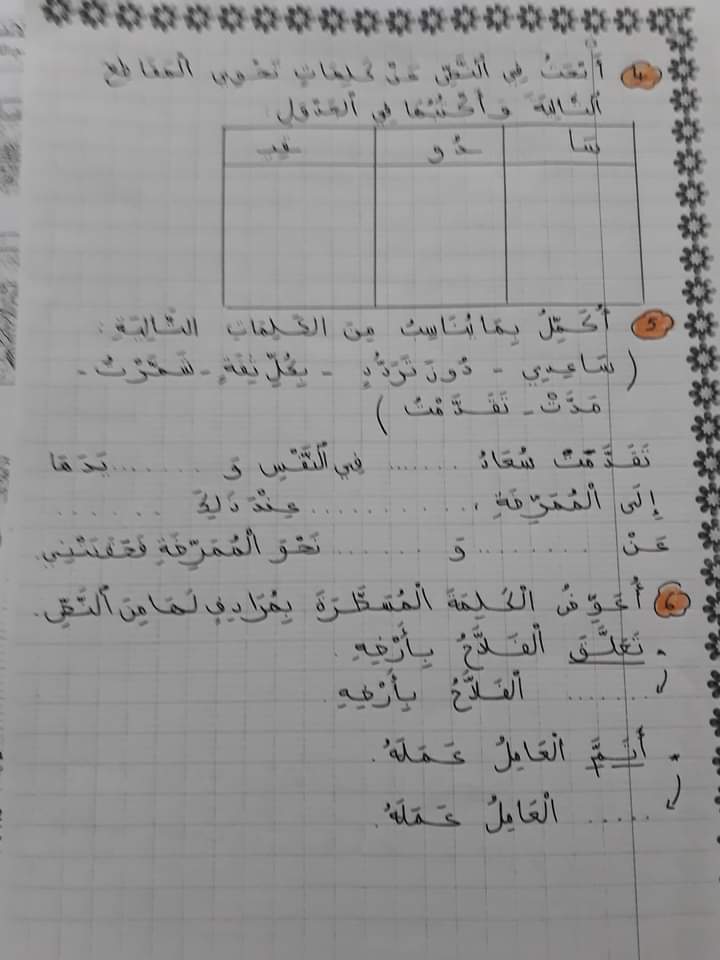 4 أَبْحَثُ فِي النَّصِّ عَنْ كَلِمَاتٍ تَحْوِي المَقَاطِعَ
التَّالِيَةَ وَ أَكْتُبُهَا فِي الجَدْوَلِ.
سَا دُو
5 أُكَمِّلُ بِمَا يُنَاسِبُ مِنَ الكَلِمَاتِ التَّالِيَةِ:
( سَاعِدِي - دُونَ تَرَدُّدٍ - بِكُلِّ ثِقَةٍ - شَمَّرْتُ -
مَدَّتْ - تَقَدَّمْتُ )
تَقَدَّمَتْ سُعَادُ ...... فِي النَّفْسِ وَ ........ يَدَهَا
إِلَى الْمُمَرِّضَةِ ............ عِنْدَ ذَلِكَ .......
عَنْ ......... وَ ......... نَحْوَ الْمُمَرِّضَةِ فَحَقَنَتْنِي.
6 أُعَوِّضُ الْكَلِمَةَ الْمُسَطَّرَةَ بِمُرَادِفٍ لَهَا مِنَ النَّصِّ.
تَعَلَّقَ الْفَلَّاحُ بِأَرْضِهِ.
....... الْفَلَّاحُ بِأَرْضِهِ.
أَتَمَّ الْعَامِلُ عَمَلَهُ.
...... الْعَامِلُ عَمَلَهُ.